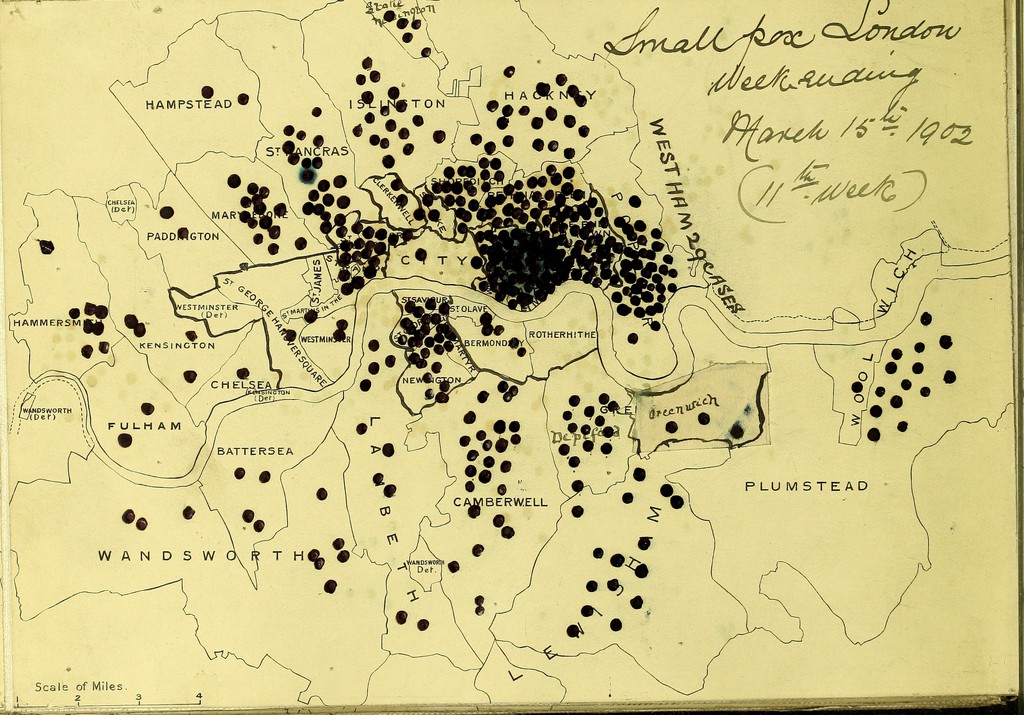 Small pox London
Week ending
March 15th 1902
(11th Week)
Newington
HAMPSTEAD
ISLINGTON
HACKNEY
ST PANCRAS
WEST HAM 29 CASES
SHOREDITCH
CLERKENWELL
CHELSEA
(Det)
MARYLEBONE
PADDINGTON
CITY
POPLAR
ST JAMES
ST GEORGE HANOVER SQUARE
ST MARTIN IN THE
WESTMINSTER
(Det)
WESTMINSTER
ST SAVIOUR
ST OLAVE
BERMONDSEY
ROTHERHITHE
NEWINGTON
HAMMERSMITH
KENSINGTON
CHELSEA
(KENSINGTON
Det)
WANDSWORTH
(Det)
FULHAM
BATTERSEA
LAMBETH
CAMBERWELL
Deptford
GREE
Greenwich
WOOLWICH
PLUMSTEAD
WANDSWORTH
WANDSWORTH
Det.
LEWISHAM
Scale of Miles.
1 2 3 4